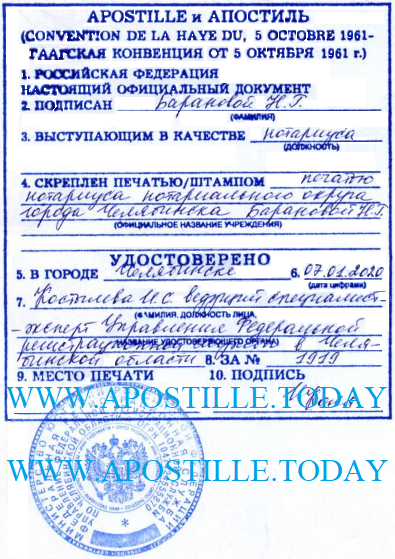 APOSTILLE и АПОСТИЛЬ
(CONVENTION DE LA HAYE DU, 5 OCTOBRE 1961-
ГААГСКАЯ КОНВЕНЦИЯ ОТ 5 ОКТЯБРЯ 1961 г.)
1. РОССИЙСКАЯ ФЕДЕРАЦИЯ
НАСТОЯЩИЙ ОФИЦИАЛЬНЫЙ ДОКУМЕНТ
2. ПОДПИСАН Барановой Н.Г.
(ФАМИЛИЯ)
3. ВЫСТУПАЮЩИМ В КАЧЕСТВЕ нотариуса
(ДОЛЖНОСТЬ)
4. СКРЕПЛЕН ПЕЧАТЬЮ/ШТАМПОМ печатью
нотариуса нотариального округа
города Челябинска Барановой Н.Г.
(ОФИЦИАЛЬНОЕ НАЗВАНИЕ УЧРЕЖДЕНИЯ)
УДОСТОВЕРЕНО
5. В ГОРОДЕ Челябинске 6. 07.01.2020
(дата цифрами)
7. Костылева И.С. ведущий специалист-
(ФАМИЛИЯ, ДОЛЖНОСТЬ ЛИЦА,
-эксперт Управления Федеральной
регистрационной службы в Челя-
НАЗВАНИЕ УДОСТОВЕРЯЮЩЕГО ОРГАНА)
бинской области 8. ЗА № 1919
9. МЕСТО ПЕЧАТИ 10. ПОДПИСЬ
WWW.APOSTILLE.TODAY
WWW.APOSTILLE.TODAY